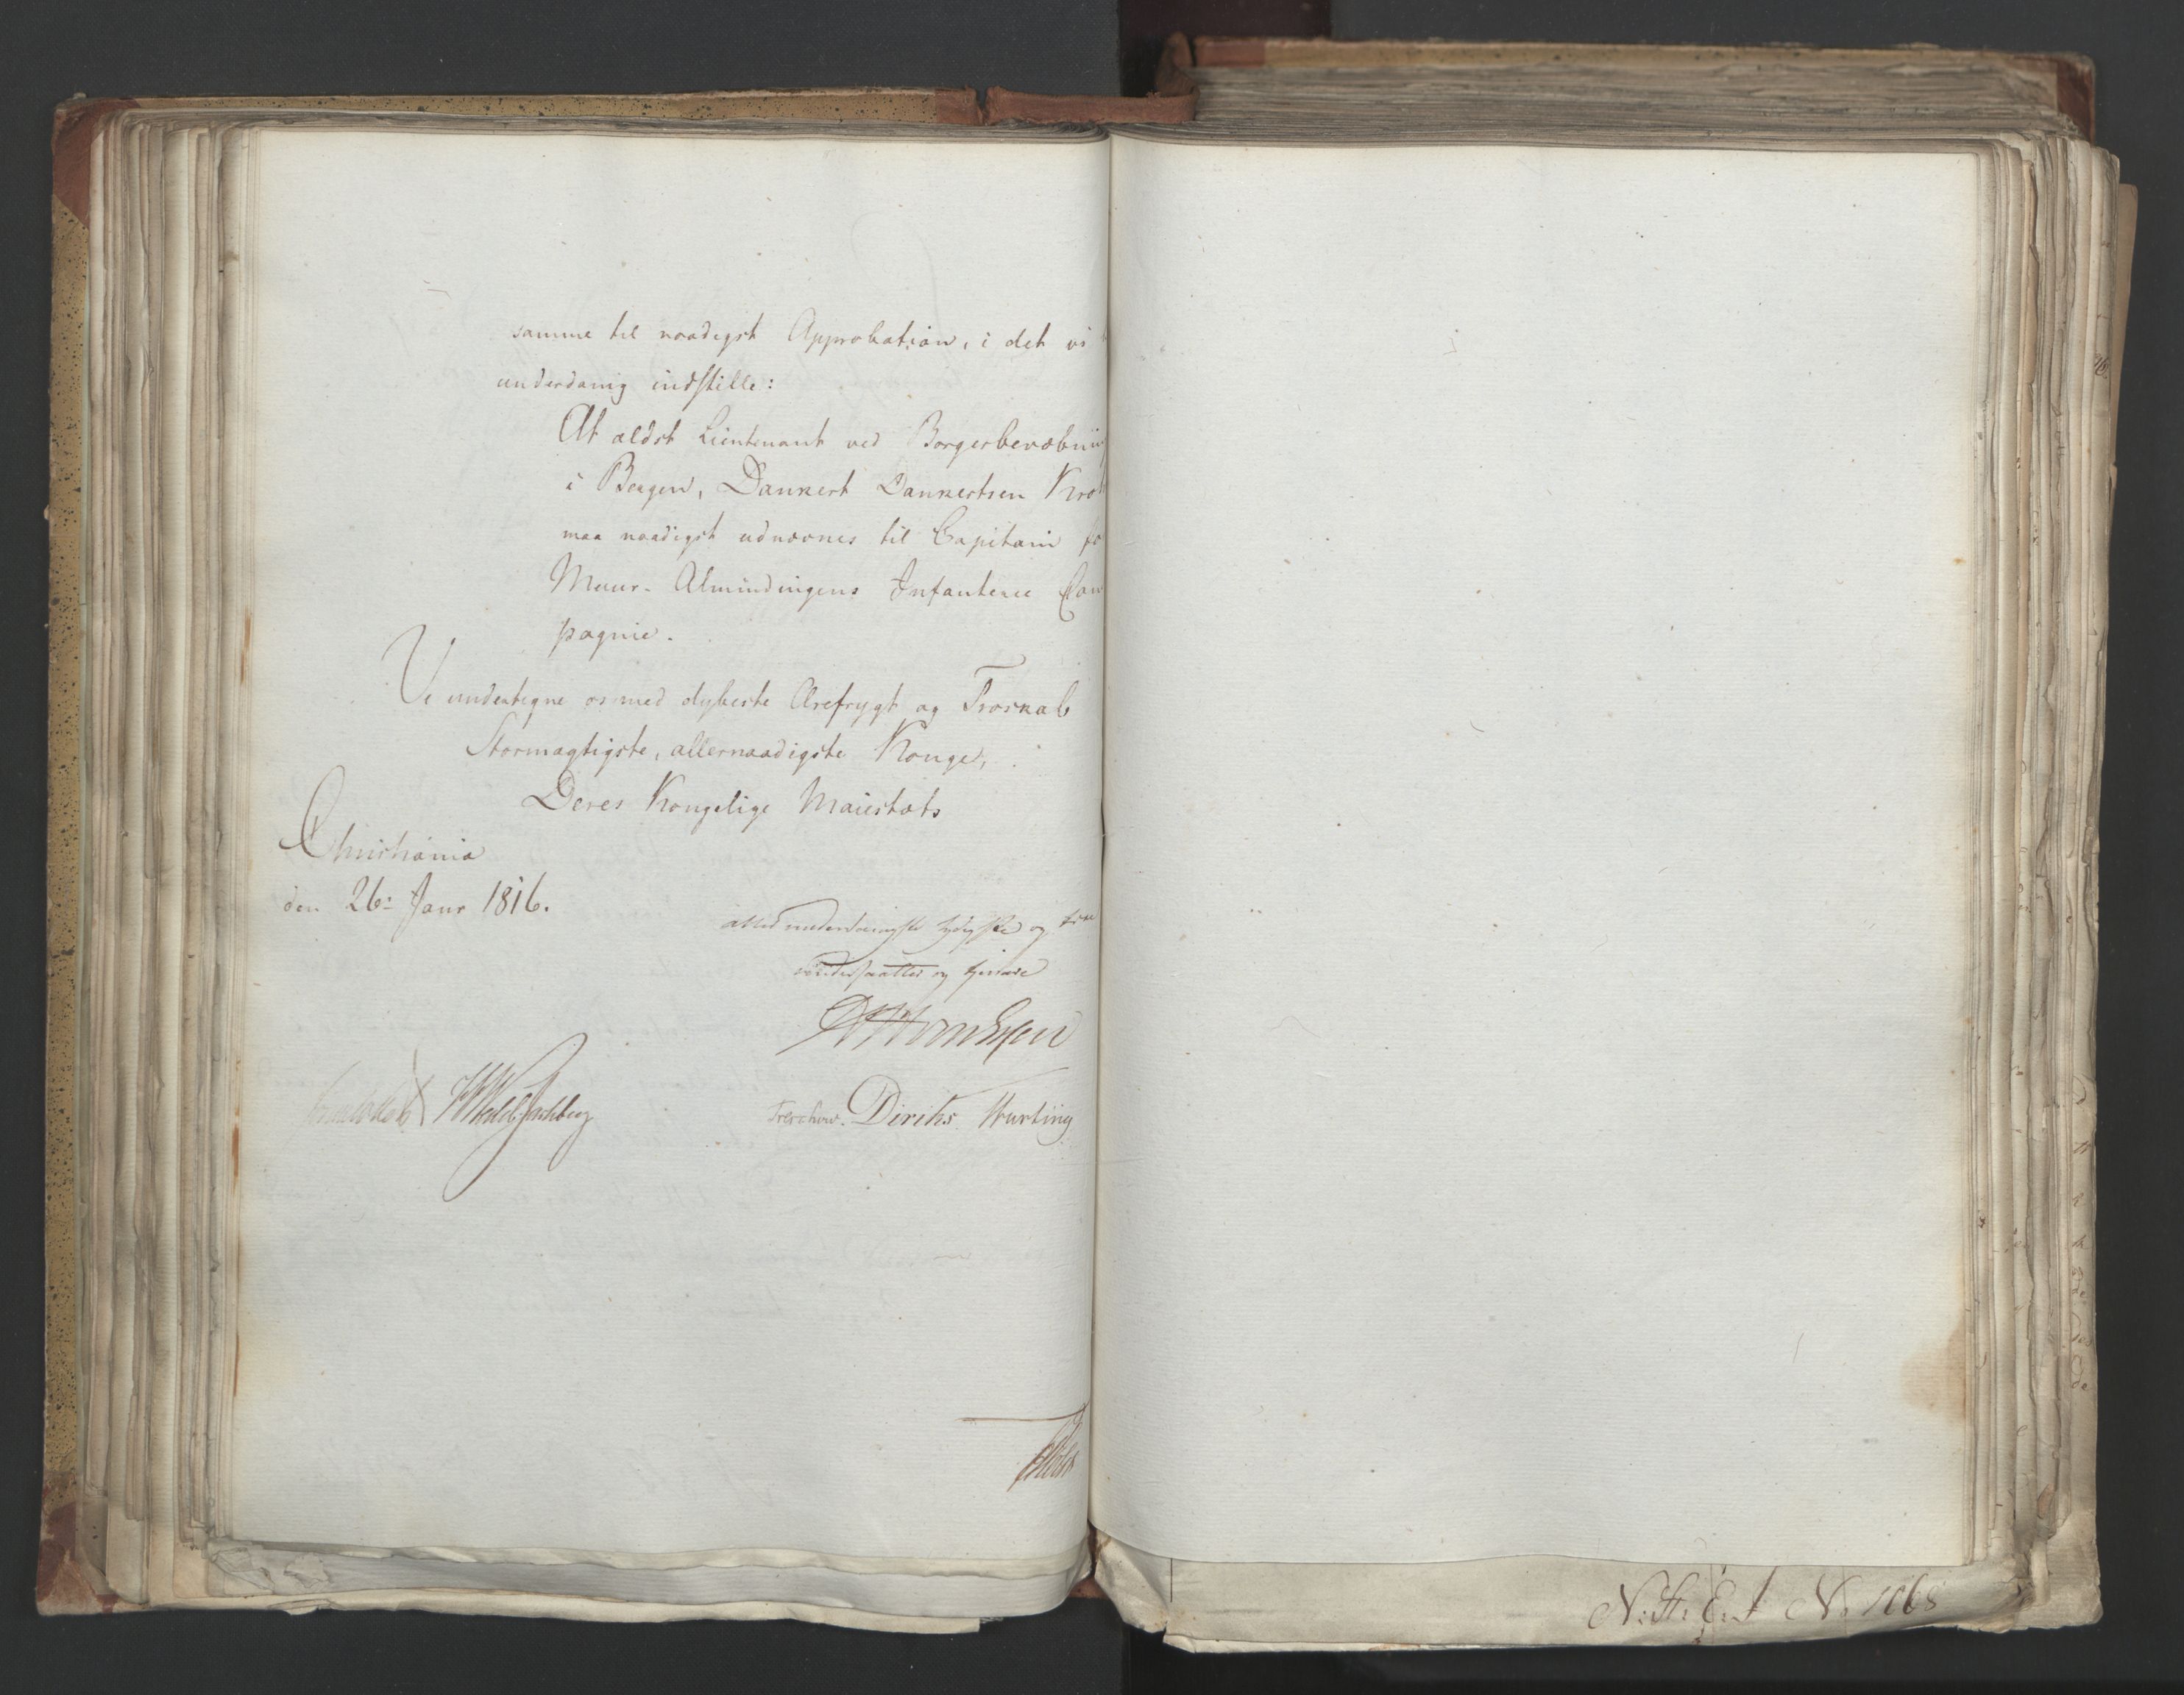 samme til naadigst Approbation, i det vi
underdanig indstille:
At ældst Lieutenant ved Borgerbevæbnin
i Bergen, Dankert Dankertsen Kro
maa naadigst udnævnes til Capitain fo
Muur-Almindingens Infanterie Com
pagnie.
Vi undertegne os med dybeste Ærefrygt og Troskab
Stormægtigste, allernaadigste Konge,
Deres Kongelige Maiestæts
Christiania
den 26: Janr 1816.
allerunderdanigste og
undersaatter og tjenere
Treschow. Diriks
N: St: E: A No 1068